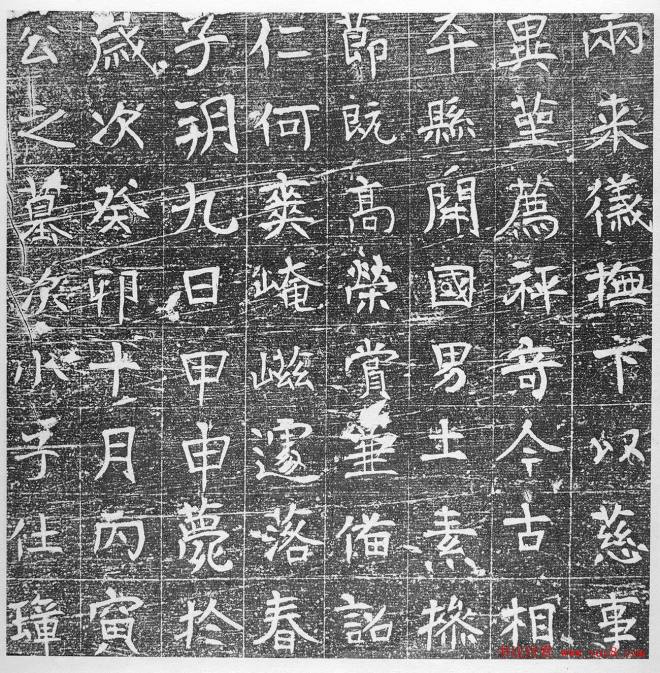 兩来儀撫下以慈事
異莖薦祥奇今古相
平縣開國男土素操
節既高榮賞亟俻詔
仁何爽崦嵫遽落春
子朔九日甲申薨於
歲次癸卯十月丙寅
公之墓次小子仕璋